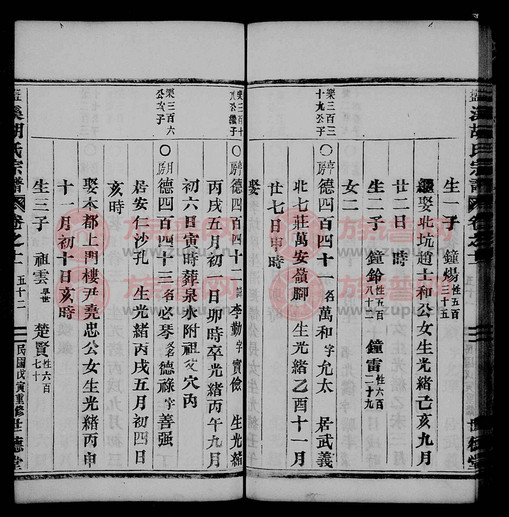 生一子 鐘煬 性五百三十五
繼娶北坑趙士和公女生光緒己亥九月
廿二日 時
生二子 鐘鈴 性五百八十五 鐘雷 性六百二十九
女二
樂三百三十九公次子
○ 德四百四十一 名萬和 字允太 居武義
北七莊萬安嶺腳 生光緒乙酉十一月
廿七日申時
娶
○ 德四百四十二 名李勤 字實儉 生光緒
丙戌五月初一日卯時卒光緒丙午九月
初六日寅時葬泉水附祖父穴丙
樂三百六 公次子
○ 德四百四十三 名必琴 又名德祿 字善强
居安仁沙孔 生光緒丙戌五月初四日
亥時
娶本都上門樓尹堯忠公女生光緒丙申
十一月初十日亥時
生三子 祖雲 早世 楚賢 性六百七十
盤溪胡氏宗譜 卷之十一 五十二 民國戊寅重修 世德堂
族譜网